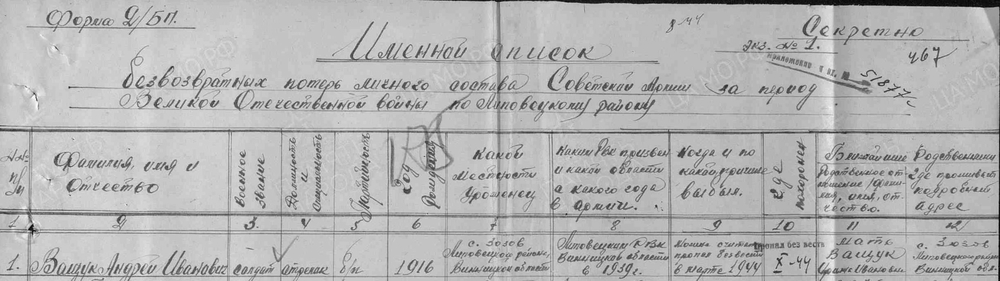 Форма 2/БП.
Секретно
экз. № 1.
467
Именной список
51877с
безвозвратных потерь личного состава Советской Армии за период
Великой Отечественной войны по Липовецкому району
№№ п/п
Фамилия, имя и Отчество
Военное звание
Должность и специальность
Партийность
Год рождения
Какой местности уроженец
Каким РВК призван и какой области и какого года в армии.
Когда и по какой причине выбыл.
Где похоронен
Ближайшие Родственники
Родственное отношение, фамилия, имя, отчество.
Где проживает подробный адрес
1 2 3. 4 5 6 7 8 9 10 11 12
1. Ващук Андрей Иванович солдат б/п 1916
с. Зозов Липовецкого района, Винницкой области
Липовецким РВК Винницкой области в 1939 г.
Можно считать пропал безвести в марте 1944
Пропал без вести
X-44
Мать Ващук Ивановна
с. Зозов Липовецкого района Винницкой обл.